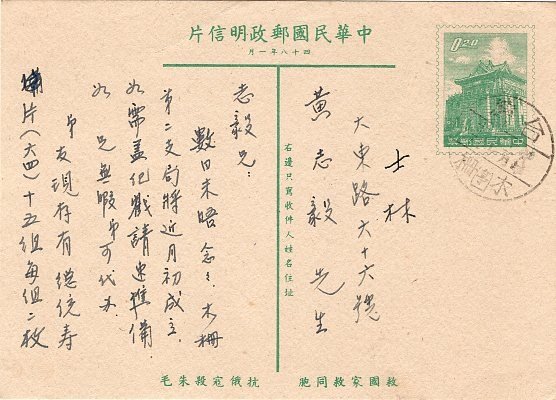 中華民國郵政明信片
四十八年一月
0.20
中華民國郵票
士林
大東路六十六號
黃志毅先生
右邊只寫收件人姓名住址
志毅兄：
數日未晤念念，木柵
第二支局將近月初成立，
如需蓋紀戳請速準備，
如兄無暇弟可代办，
弟友現存有總統壽
片（六四）十五組每組二枚
救國家救同胞
抗俄寇殺朱毛